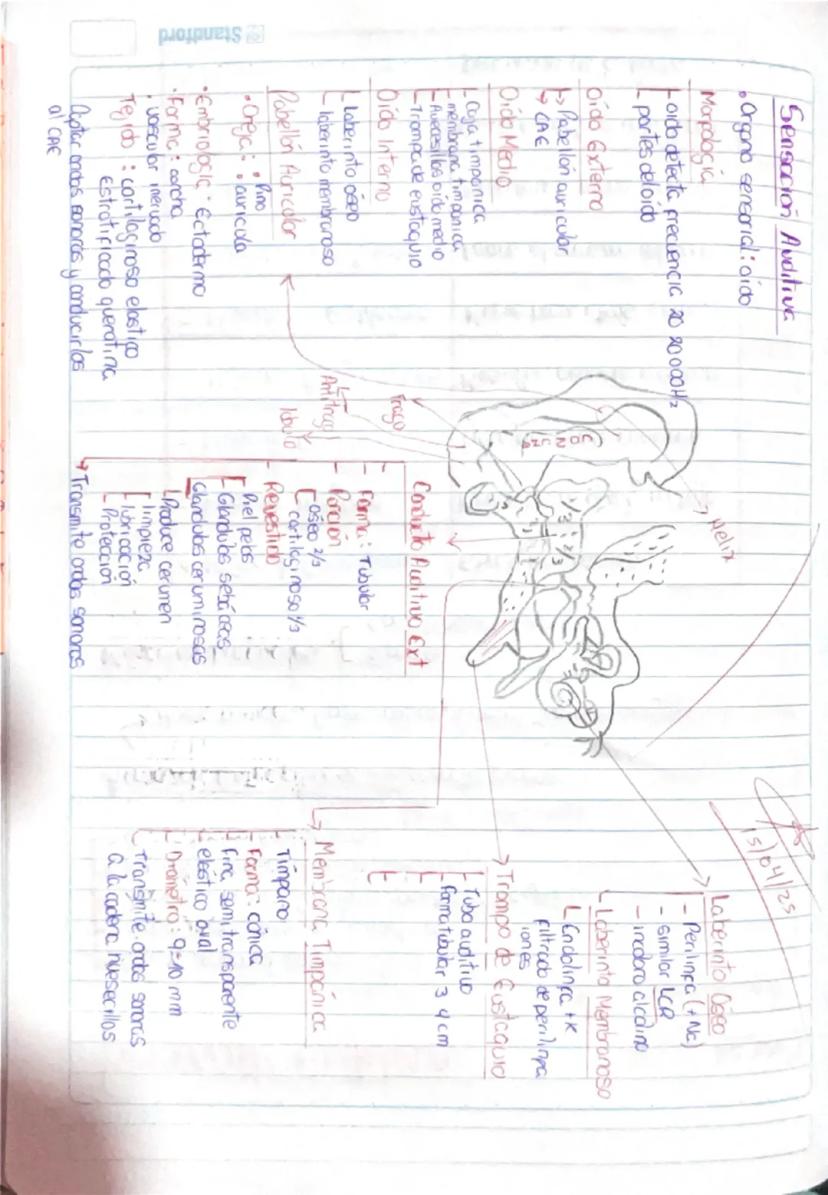 Sensación Auditiva
• Organo sensorial: oído
Morfología
oído detecta frecuencia 20 20000Hz
partes del oído
Oído Externo
Pabellón auricular
CAE
Oído Medio
Caja timpánica
membrana timpanica
oído medio
Trompa de eustaquio
Oído Interno
Laberinto óseo
laberinto membranoso
Pabellón Auricular
• Oreja: • Pino
• aurícula
• Embriología: Ectodermo
• Forma: concha
• vascular
Tejido: cartilaginoso elastico
estratificado queratina
Captar ondas sonoras y conducirlas
al CAE
Helix
CONCHA
Trago
Antitrago
lóbulo
1/3
2/3
Conducto Auditivo Ext
Forma: Tubular
Porción
óseo 2/3
cartilaginoso 1/3
Revestido
Piel pelos
Glandulas sebáceas
Glandulas ceruminosas
Produce cerumen
limpieza
lubricación
Protección
Transmite ondas sonoras
15/04/25
Laberinto Óseo
- Perilinfa (+Na)
- similar LCR
- incoloro alcalino
Laberinto Membranoso
Endolinfa +K
filtrado de perilinfa
iones
Trompa de Eustaquio
Tuba auditiva
forma tubular 3 4 cm
Membrana Timpánica
Tímpano
Forma: cónica
Fina, semitransparente
elastico oval
Diámetro: 9-10 mm
Transmite ondas sonoras
a la cadena huesecillos
Standford